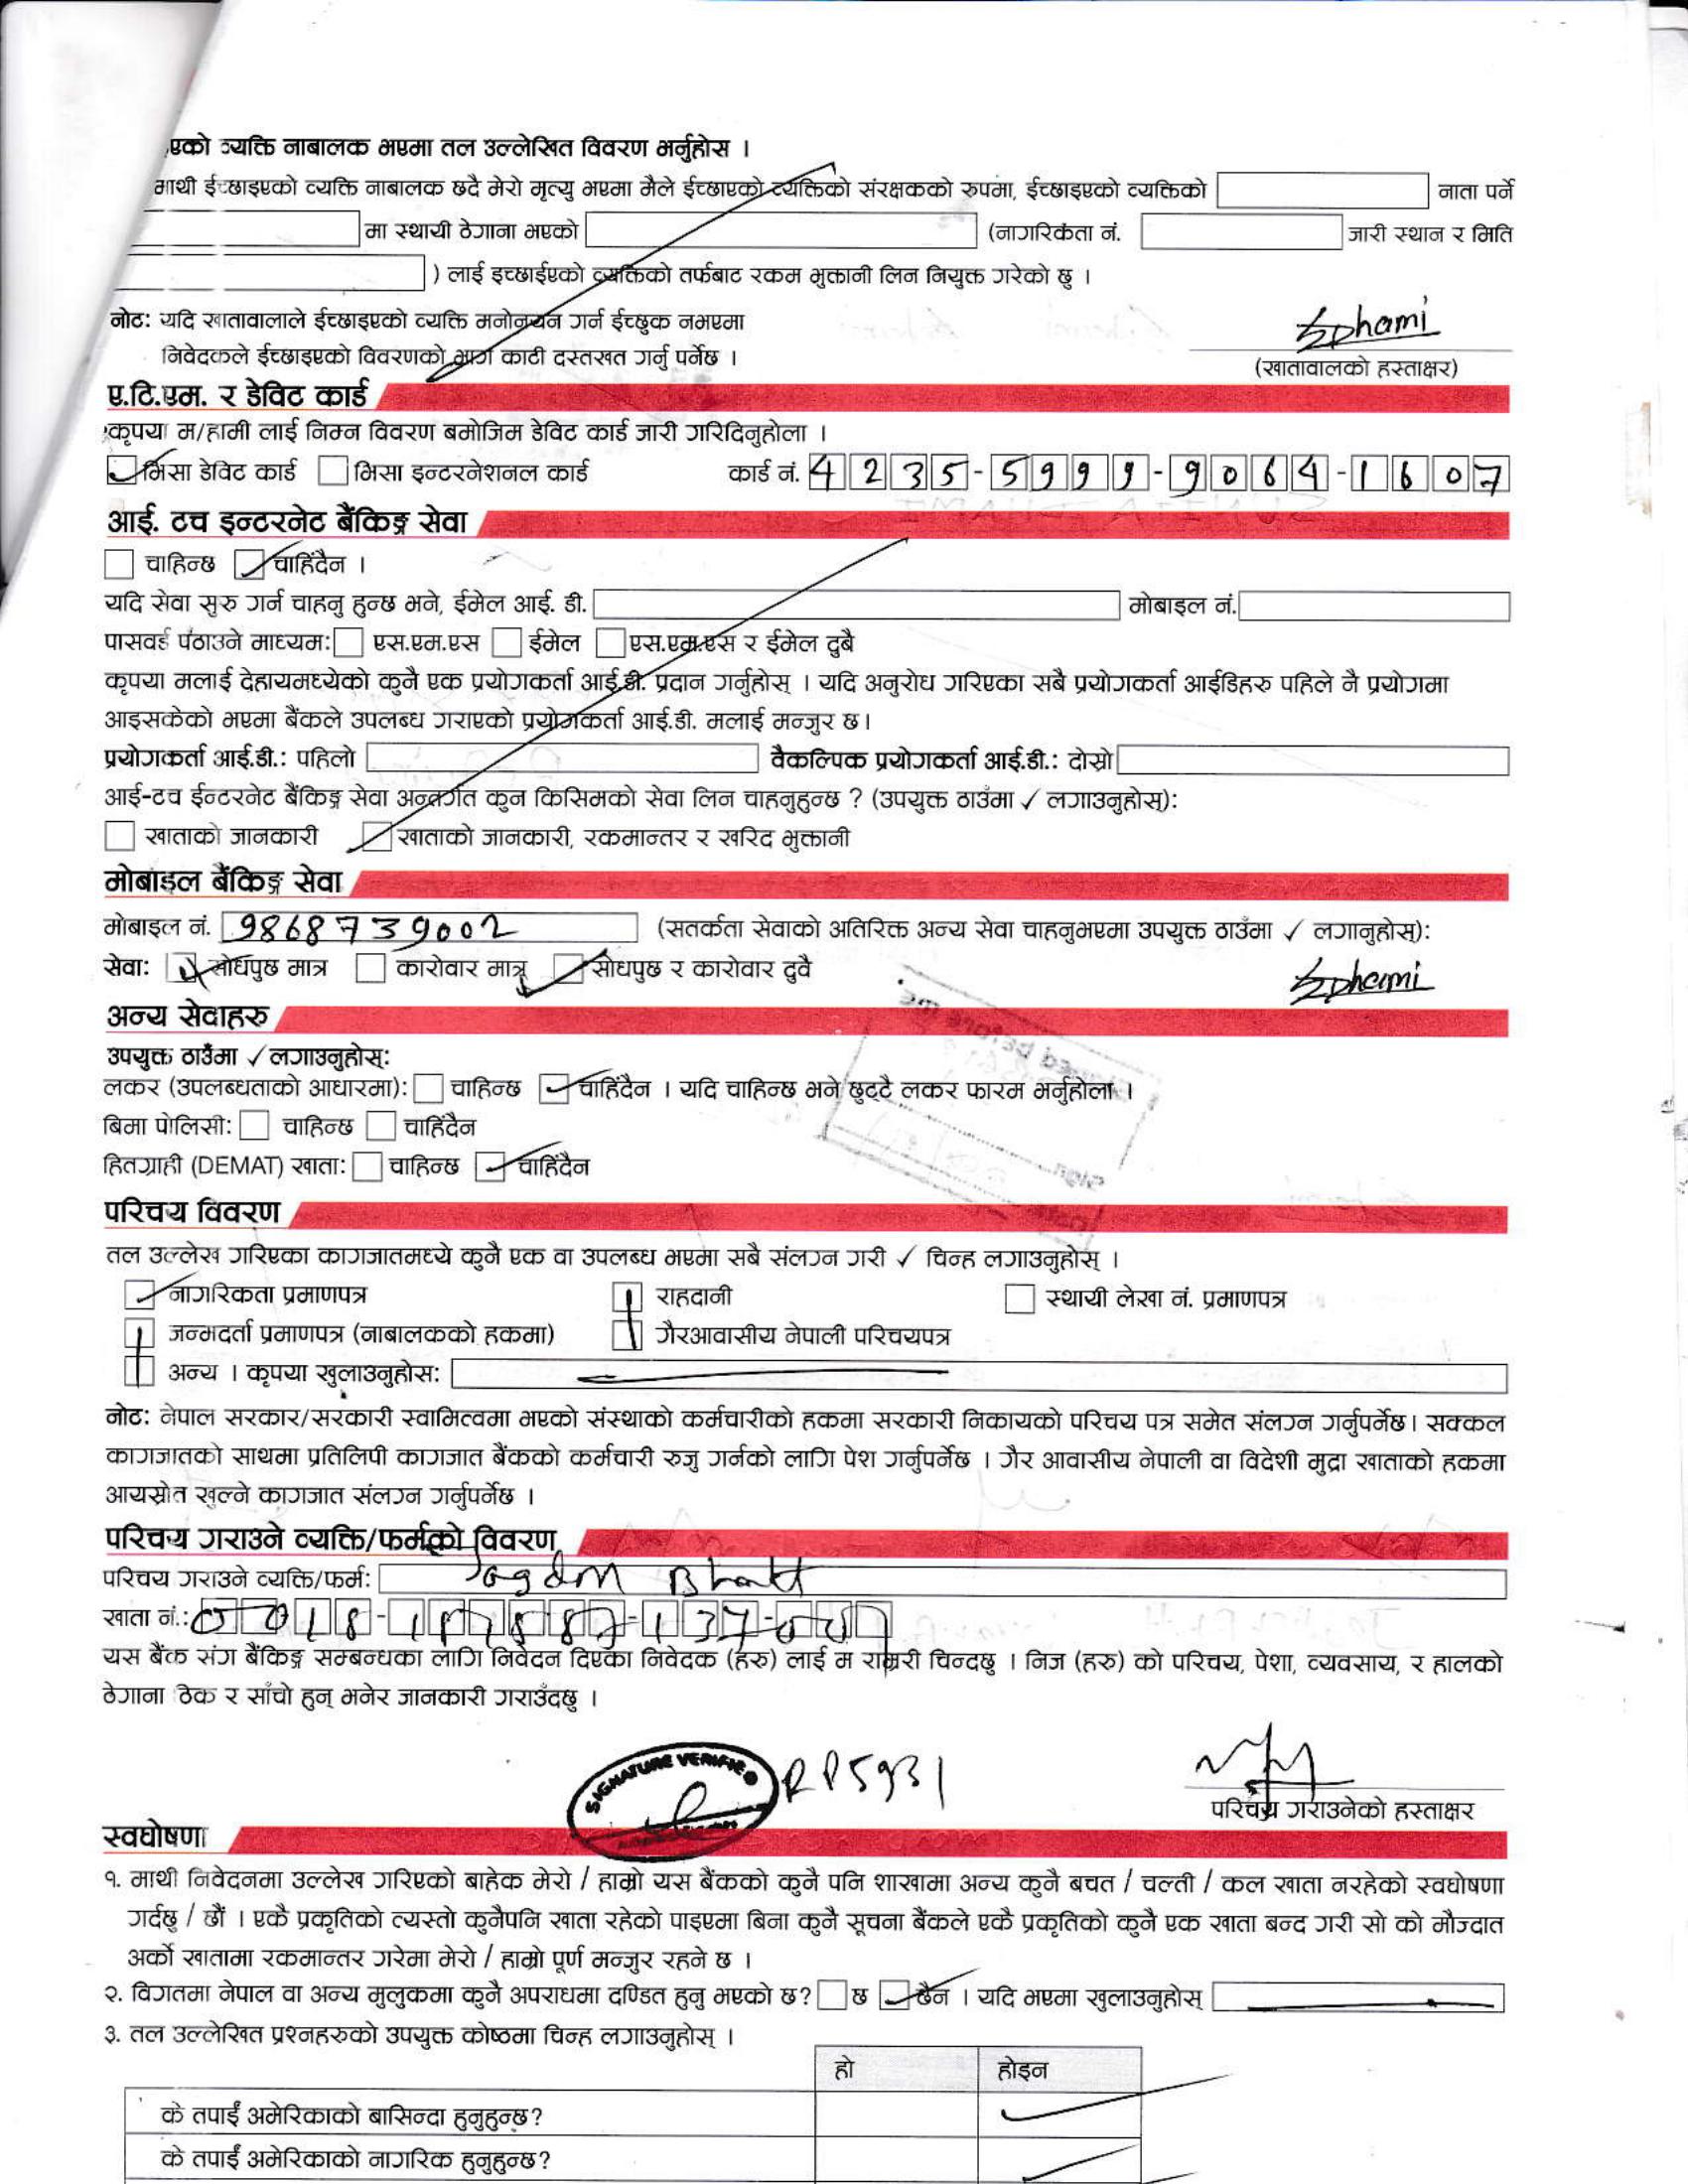 एको व्यक्ति नाबालक भएमा तल उल्लेखित विवरण भर्नुहोस ।
माथी ईच्छाइएको व्यक्ति नाबालक छदै मेरो मृत्यु भएमा मैले ईच्छाएको व्यक्तिको संरक्षकको रुपमा, ईच्छाइएको व्यक्तिको नाता पर्ने
मा स्थायी ठेगाना भएको (नागरिकता नं. जारी स्थान र मिति
) लाई इच्छाईएको व्यक्तिको तर्फबाट रकम भुक्तानी लिन नियुक्त गरेको छु ।
नोट: यदि खातावालाले ईच्छाइएको व्यक्ति मनोनयन गर्न ईच्छुक नभएमा
निवेदकले ईच्छाइएको विवरणको भाग काटी दस्तखत गर्नु पर्नेछ ।
(खातावालको हस्ताक्षर)
ए.टि.एम. र डेविट कार्ड
कृपया म/हामी लाई निम्न विवरण बमोजिम डेविट कार्ड जारी गरिदिनुहोला ।
भिसा डेविट कार्ड भिसा इन्टरनेशनल कार्ड कार्ड नं. 4235-5999-9064-1607
आई. टच इन्टरनेट बैंकिङ्ग सेवा
चाहिन्छ चाहिंदैन ।
यदि सेवा सुरु गर्न चाहनु हुन्छ भने, ईमेल आई. डी. मोबाइल नं.
पासवर्ड पठाउने माध्यम: एस.एम.एस ईमेल एस.एम.एस र ईमेल दुबै
कृपया मलाई देहायमध्येको कुनै एक प्रयोगकर्ता आई.डी. प्रदान गर्नुहोस् । यदि अनुरोध गरिएका सबै प्रयोगकर्ता आईडिहरु पहिले नै प्रयोगमा
आइसकेको भएमा बैंकले उपलब्ध गराएको प्रयोगकर्ता आई.डी. मलाई मन्जुर छ।
प्रयोगकर्ता आई.डी.: पहिलो वैकल्पिक प्रयोगकर्ता आई.डी.: दोस्रो
आई-टच ईन्टरनेट बैंकिङ्ग सेवा अन्तर्गत कुन किसिमको सेवा लिन चाहनुहुन्छ ? (उपयुक्त ठाउँमा ✓ लगाउनुहोस्):
खाताको जानकारी खाताको जानकारी, रकमान्तर र खरिद भुक्तानी
मोबाइल बैंकिङ्ग सेवा
मोबाइल नं. 9868739002 (सतर्कता सेवाको अतिरिक्त अन्य सेवा चाहनुभएमा उपयुक्त ठाउँमा ✓ लगानुहोस्):
सेवा: सोधपुछ मात्र कारोवार मात्र सोधपुछ र कारोवार दुवै
अन्य सेवाहरु
उपयुक्त ठाउँमा ✓ लगाउनुहोस्:
लकर (उपलब्धताको आधारमा): चाहिन्छ चाहिंदैन । यदि चाहिन्छ भने छुट्टै लकर फारम भर्नुहोला ।
बिमा पोलिसी: चाहिन्छ चाहिंदैन
हितग्राही (DEMAT) खाता: चाहिन्छ चाहिंदैन
परिचय विवरण
तल उल्लेख गरिएका कागजातमध्ये कुनै एक वा उपलब्ध भएमा सबै संलग्न गरी ✓ चिन्ह लगाउनुहोस् ।
नागरिकता प्रमाणपत्र राहदानी स्थायी लेखा नं. प्रमाणपत्र
जन्मदर्ता प्रमाणपत्र (नाबालकको हकमा) गैरआवासीय नेपाली परिचयपत्र
अन्य । कृपया खुलाउनुहोस:
नोट: नेपाल सरकार/सरकारी स्वामित्वमा भएको संस्थाको कर्मचारीको हकमा सरकारी निकायको परिचय पत्र समेत संलग्न गर्नुपर्नेछ। सक्कल
कागजातको साथमा प्रतिलिपी कागजात बैंकको कर्मचारी रुजु गर्नको लागि पेश गर्नुपर्नेछ । गैर आवासीय नेपाली वा विदेशी मुद्रा खाताको हकमा
आयस्रोत खुल्ने कागजात संलग्न गर्नुपर्नेछ ।
परिचय गराउने व्यक्ति/फर्मको विवरण
परिचय गराउने व्यक्ति/फर्म: Bhatt
खाता नं.:
यस बैंक संग बैंकिङ्ग सम्बन्धका लागि निवेदन दिएका निवेदक (हरु) लाई म राम्ररी चिन्दछु । निज (हरु) को परिचय, पेशा, व्यवसाय, र हालको
ठेगाना ठेक र साँचो हुन् भनेर जानकारी गराउँदछु ।
SIGNATURE VERIFIED
परिचय गराउनेको हस्ताक्षर
स्वघोषणा
१. माथी निवेदनमा उल्लेख गरिएको बाहेक मेरो / हाम्रो यस बैंकको कुनै पनि शाखामा अन्य कुनै बचत / चल्ती / कल खाता नरहेको स्वघोषणा
गर्दछु / छौं । एकै प्रकृतिको त्यस्तो कुनैपनि खाता रहेको पाइएमा बिना कुनै सूचना बैंकले एकै प्रकृतिको कुनै एक खाता बन्द गरी सो को मौज्दात
अर्को खातामा रकमान्तर गरेमा मेरो / हाम्रो पूर्ण मन्जुर रहने छ ।
२. विगतमा नेपाल वा अन्य मुलुकमा कुनै अपराधमा दण्डित हुनु भएको छ? छ छैन । यदि भएमा खुलाउनुहोस्
३. तल उल्लेखित प्रश्नहरुको उपयुक्त कोष्ठमा चिन्ह लगाउनुहोस् ।
हो होइन
के तपाईं अमेरिकाको बासिन्दा हुनुहुन्छ?
के तपाईं अमेरिकाको नागरिक हुनुहुन्छ?